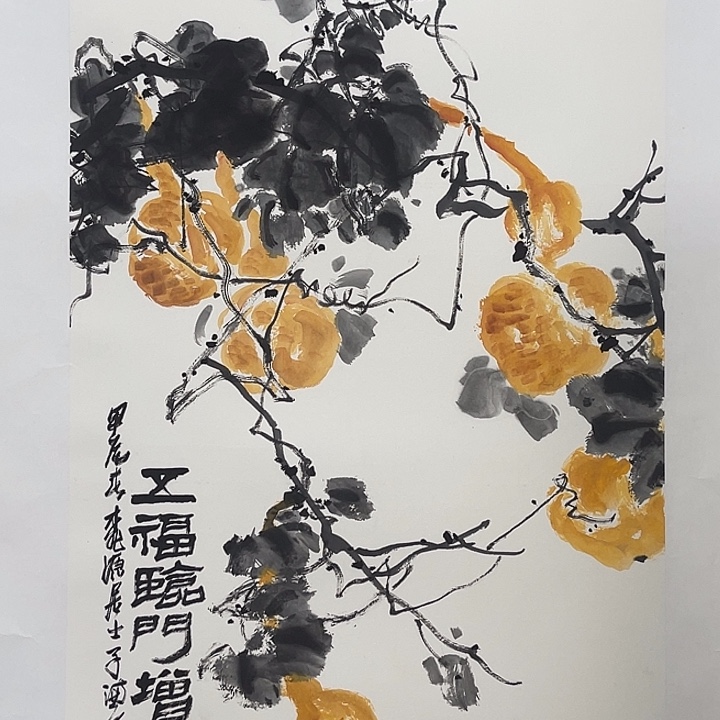 五福臨門增
甲辰春桃源居士子